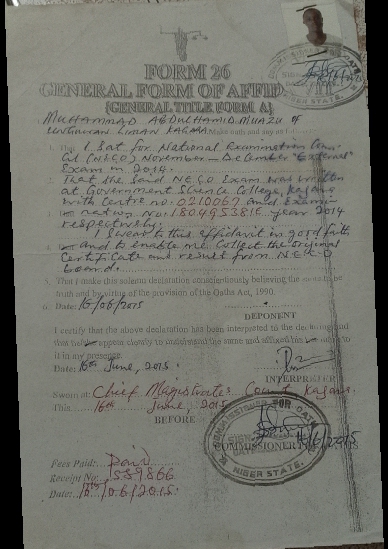 FORM 26
GENERAL FORM OF AFFID
(GENERAL TITLE FORM A)
MUHAMMAD ABDULHAMID MUAZU of
UNGUWAN LIMAN KAGARA Make oath and say as
1. That I Sat for National Examination Coun-
cil (NECO) November – December "External"
Exam in 2014.
That the Said NECO Exam was written
at Government Science College, Kagara
with Centre no: 0210067 and Exami-
nation No: year 2014
respectively.
I Swear to this affidavit in good faith
and to enable me Collect the original
Certificate and result from NECO
board.
5. That I make this solemn declaration conscientiously believing the same to be
truth and by virtue of the provision of the Oaths Act, 1990.
6. Date: 16/06/2015
DEPONENT
I certify that the above declaration has been interpreted to the
that appear clearly to understand the same and affixed his
it in my presence.
Date: 16th June, 2015.
INTERPRETER
Sworn at: Chief Magistrate Court Kagara
This 16th June, 2015
BEFORE
COMMISSIONER FOR OATH
NIGER STATE.
COMMISSIONER
16/6/2015
Fees Paid: Paid
Receipt No:
Date: 16th/06/2015.
NIGER STATE.